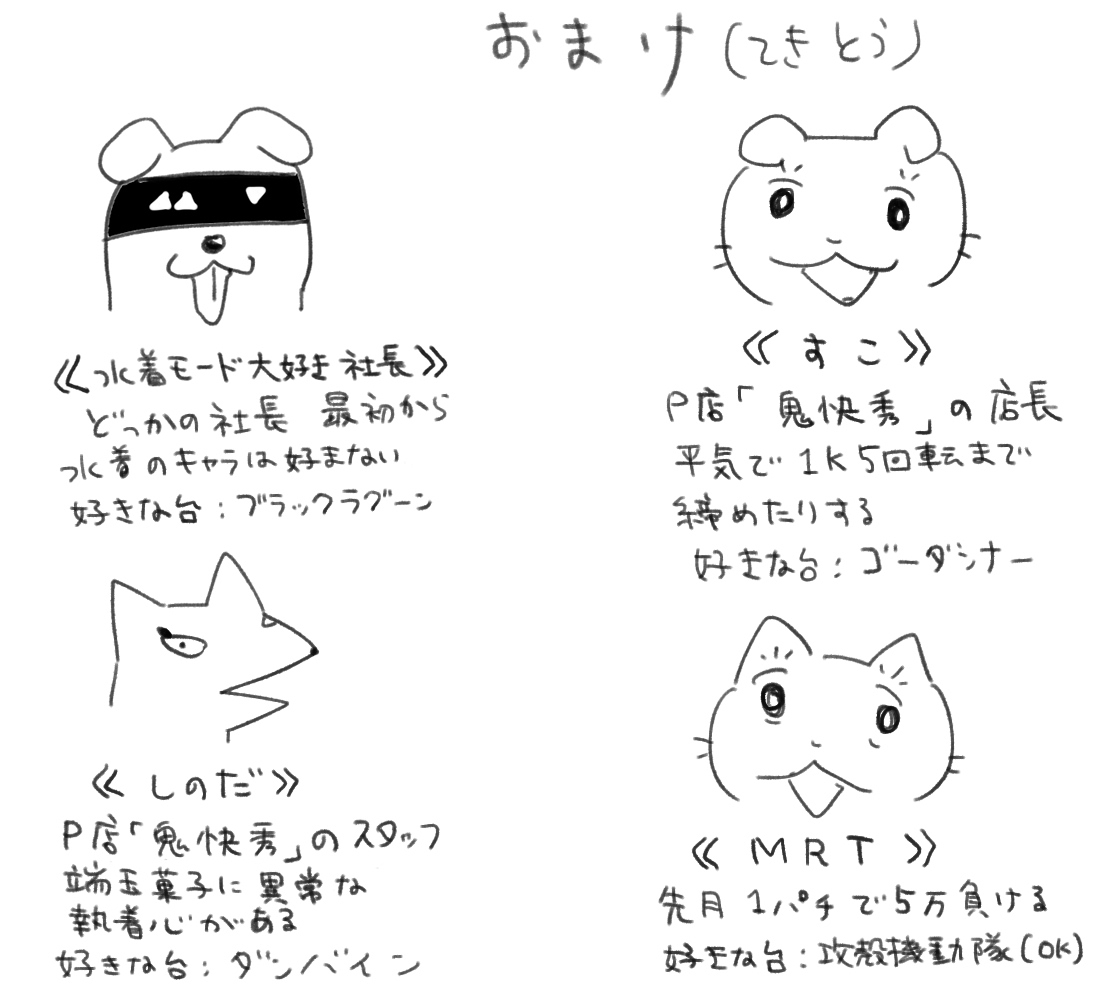 おまけ(てきとう)
《水着モード大好き社長》
どっかの社長 最初から
水着のキャラは好まない
好きな台:ブラックラグーン
《すこ》
P店「鬼快秀」の店長
平気で1K5回転まで
締めたりする
好きな台:ゴーダンナー
《しのだ》
P店「鬼快秀」のスタッフ
端玉菓子に異常な
執着心がある
好きな台:ダンバイン
《MRT》
先月1パチで5万負ける
好きな台:攻殻機動隊(OK)